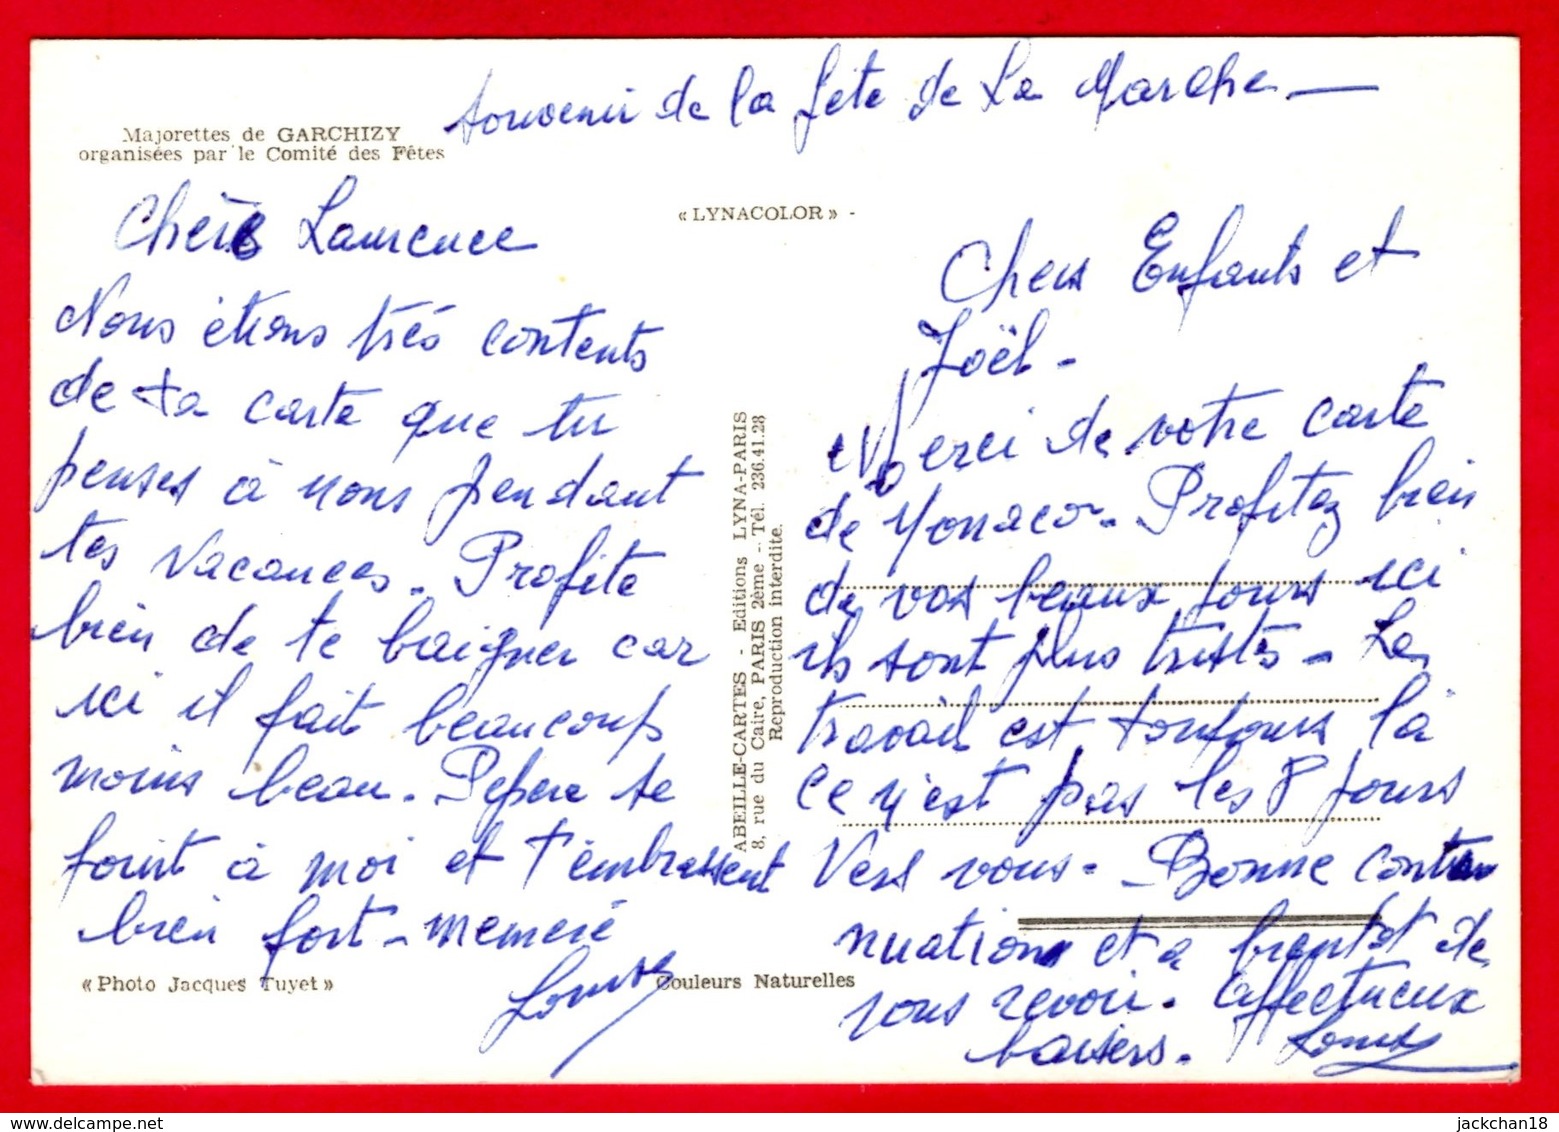 souvenir de la fete de La Marche —
Majorettes de GARCHIZY
organisées par le Comité des Fêtes
« LYNACOLOR » -
Chère Laurence
Nous étions très contents
de ta carte que tu
penses à nous pendant
tes vacances. Profite
bien de te baigner car
ici il fait beaucoup
moins beau. Pepere se
joint à moi et t'embrassent
bien fort - memeré
Louise
« Photo Jacques Tuyet »
Couleurs Naturelles
ABEILLE-CARTES - Editions LYNA-PARIS
8, rue du Caire, PARIS 2ème - Tél. 236.41.28
Reproduction interdite.
Chers Enfants et
Joël -
Merci de votre carte
de Monaco - Profitez bien
de vos beaux jours ici
ils sont plus tristes - Le
travail est toujours là
ce n'est pas les 8 jours
Vers vous - Bonne conti
nuation et a bientot de
vous revoir. Affectueux
baisers - Louise
jackchan18